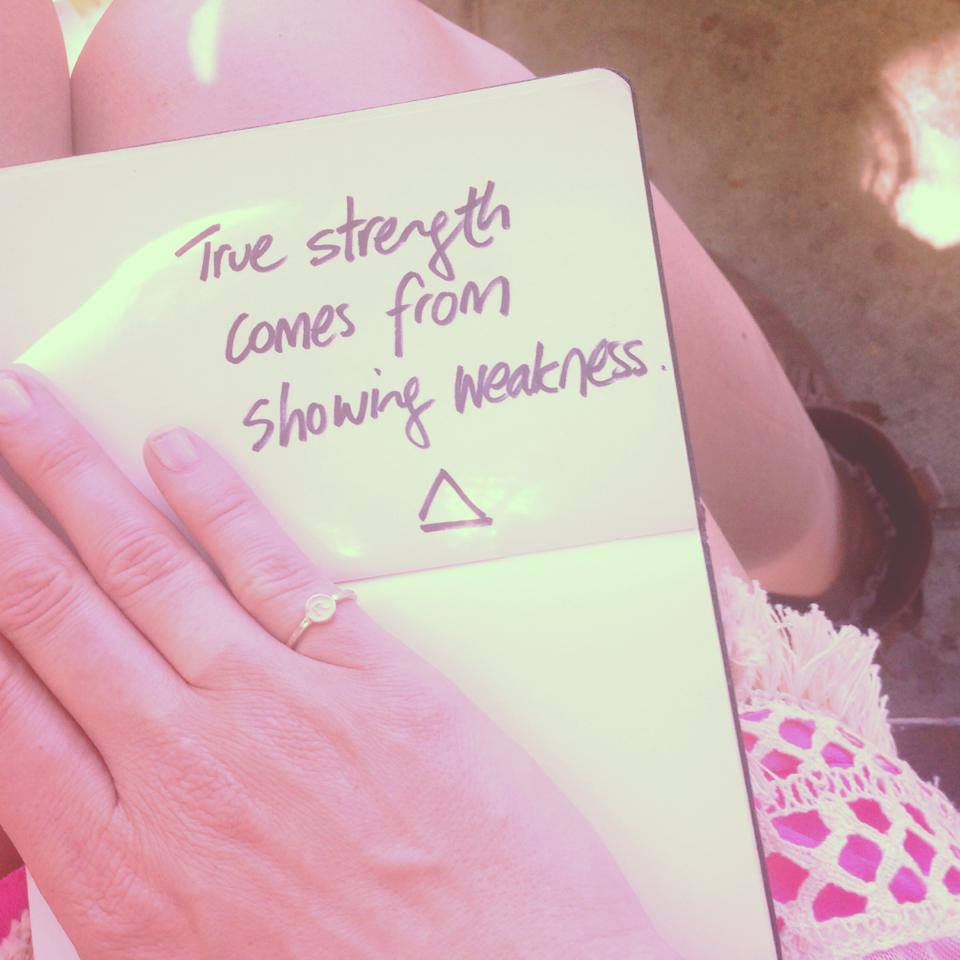 True strength
comes from
showing weakness.